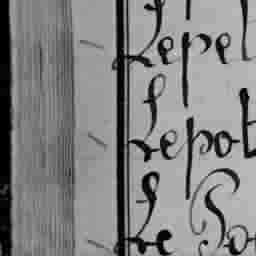 Lepet
Lepot
Le Po